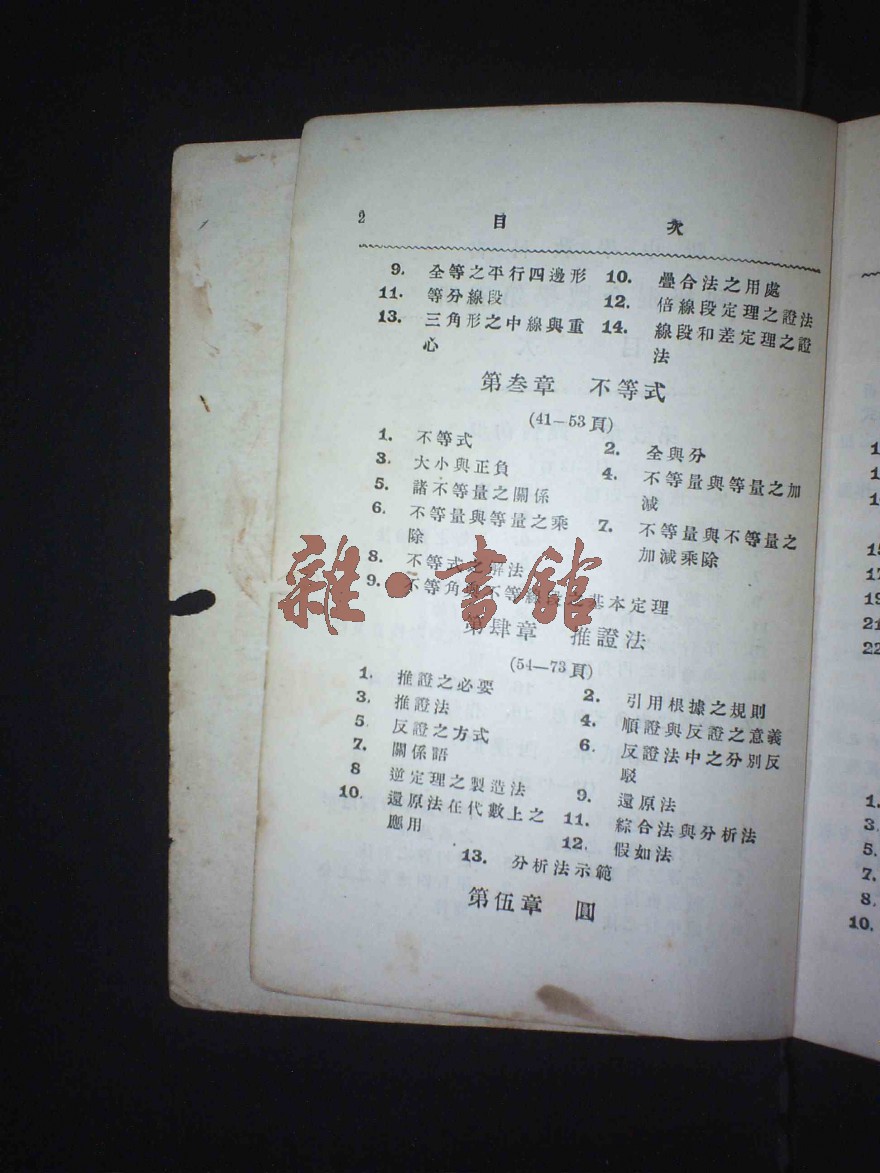 2 目 次
9. 全等之平行四邊形 10. 疊合法之用處
11. 等分線段 12. 倍線段定理之證法
13. 三角形之中線與重心 14. 線段和差定理之證法
第叁章 不等式
(41—53頁)
1. 不等式 2. 全與分
3. 大小與正負 4. 不等量與等量之加減
5. 諸不等量之關係
6. 不等量與等量之乘除 7. 不等量與不等量之加減乘除
8. 不等式之解法
9. 不等角與不等線段之基本定理
雜·書館
第肆章 推證法
(54—73頁)
1. 推證之必要 2. 引用根據之規則
3. 推證法 4. 順證與反證之意義
5. 反證之方式 6. 反證法中之分別反駁
7. 關係語
8 逆定理之製造法 9. 還原法
10. 還原法在代數上之應用 11. 綜合法與分析法
12. 假如法
13. 分析法示範
第伍章 圓
1
1
1
15
17
19
21
22
1.
3.
5.
7.
8.
10.